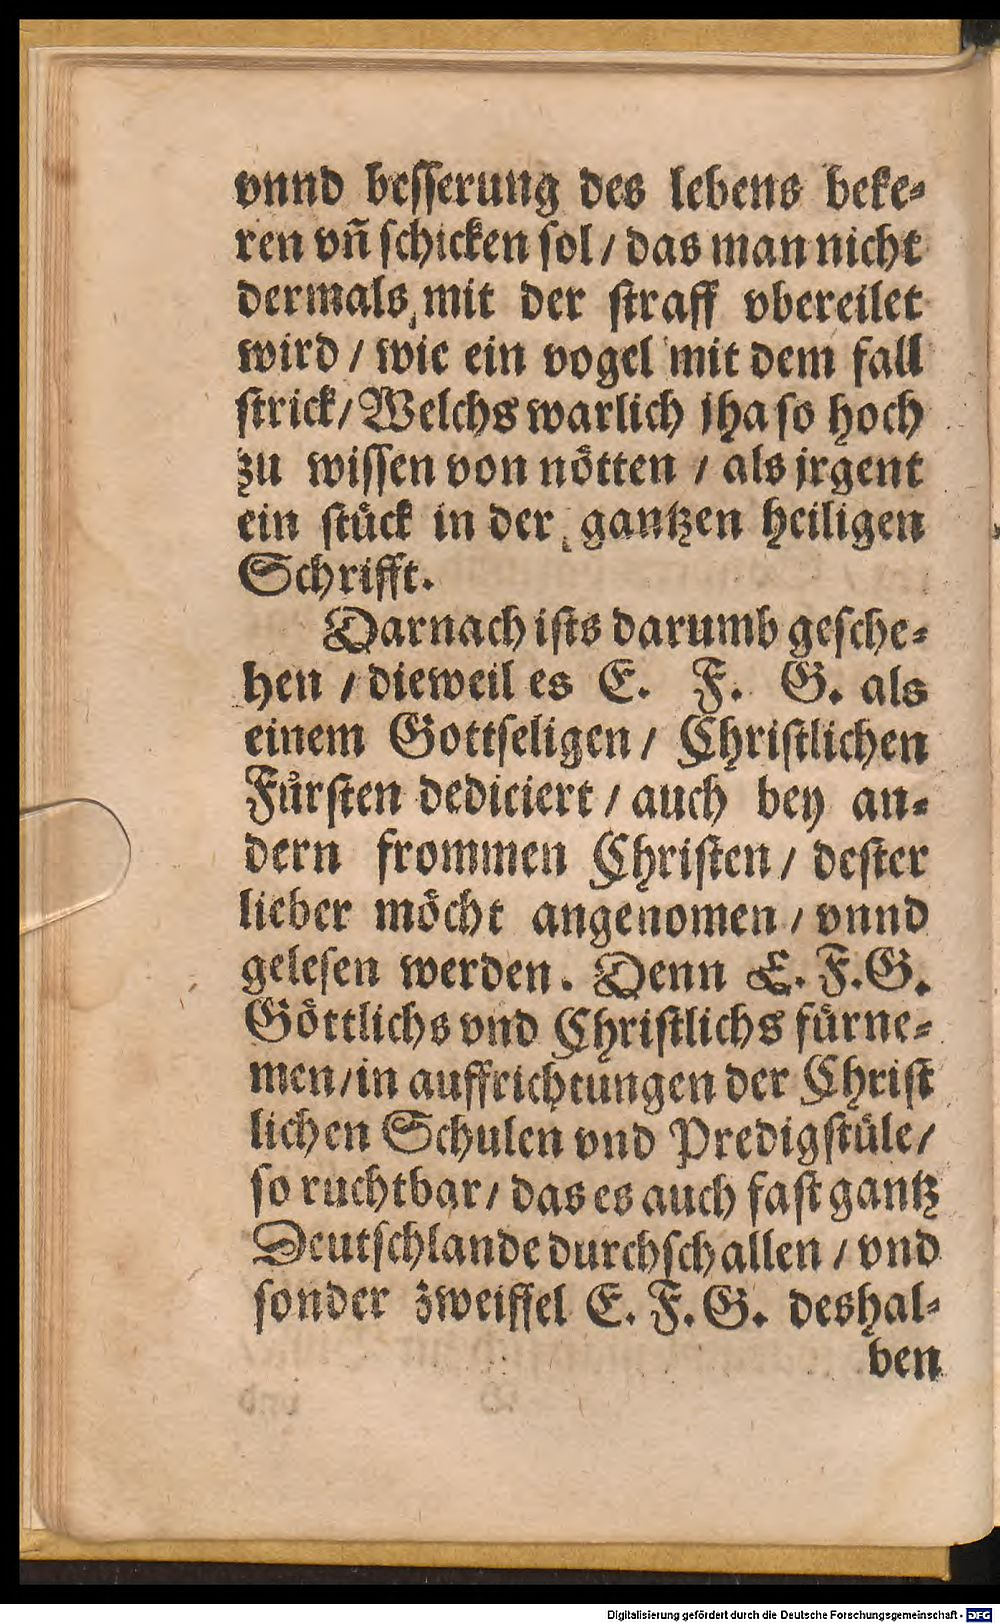 vnnd beſſerung des lebens beke⸗
ren vñ ſchicken ſol / das man nicht
dermals mit der ſtraff vbereilet
wird / wie ein vogel mit dem fall
ſtrick / Welchs warlich jha ſo hoch
zu wiſſen von nötten / als jrgent
ein ſtück in der gantzen heiligen
Schrifft.
Darnach iſts darumb geſche⸗
hen / dieweil es E. F. G. als
einem Gottſeligen / Chriſtlichen
Fürſten dediciert / auch bey an⸗
dern frommen Chriſten / deſter
lieber möcht angenomen / vnnd
geleſen werden. Denn E. F. G.
Göttlichs vnd Chriſtlichs fürne⸗
men / in auffrichtungen der Chriſt
lichen Schulen vnd Predigſtüle /
ſo ruchtbar / das es auch faſt gantz
Deutſchlande durchſchallen / vnd
ſonder zweiffel E. F. G. deshal⸗
ben
Digitalisierung gefördert durch die Deutsche Forschungsgemeinschaft - DFG